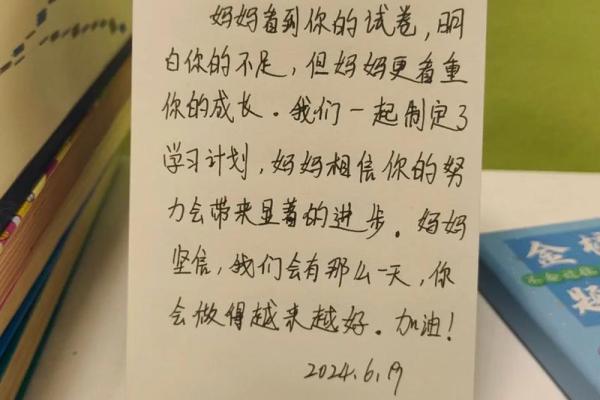 妈妈看到你的试卷，明
白你的不足，但妈妈更看重
你的成长。我们一起制定了
学习计划，妈妈相信你的努
力会带来显著的进步。妈妈
坚信，我们会有那么一天，你
会做得越来越好。加油！
2024.6.19
金
题